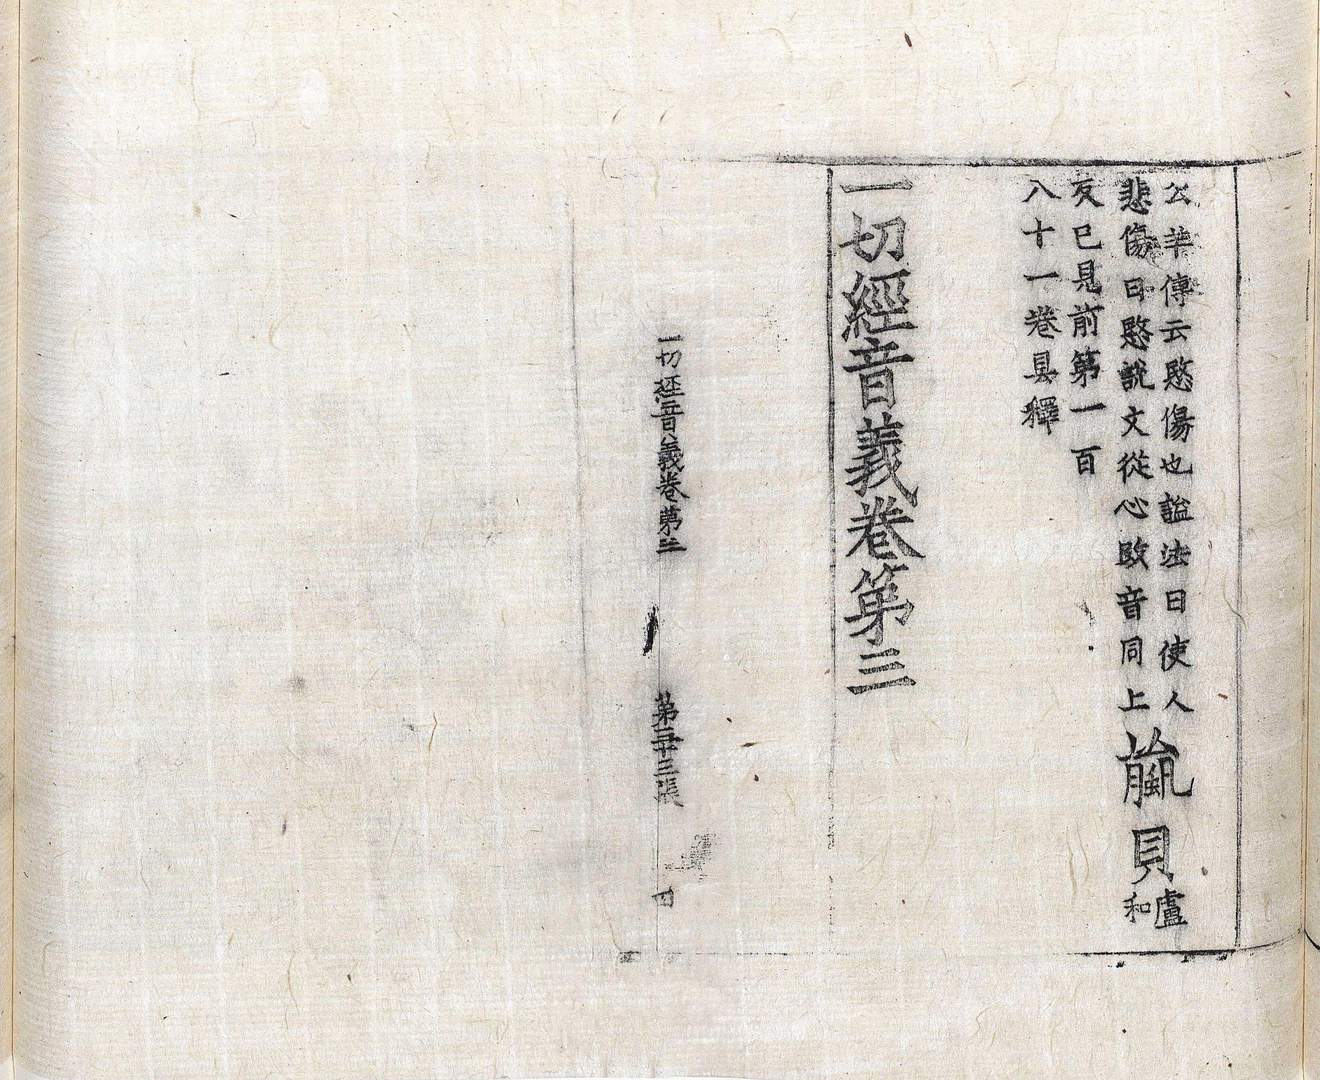 公羊傳云愍傷也謚法曰使人
悲傷曰愍說文從心敃音同上
蠃貝
盧
和
反已見前第一百
八十一卷具釋
一切經音義卷第三
一切經音義卷第三
第三十三張